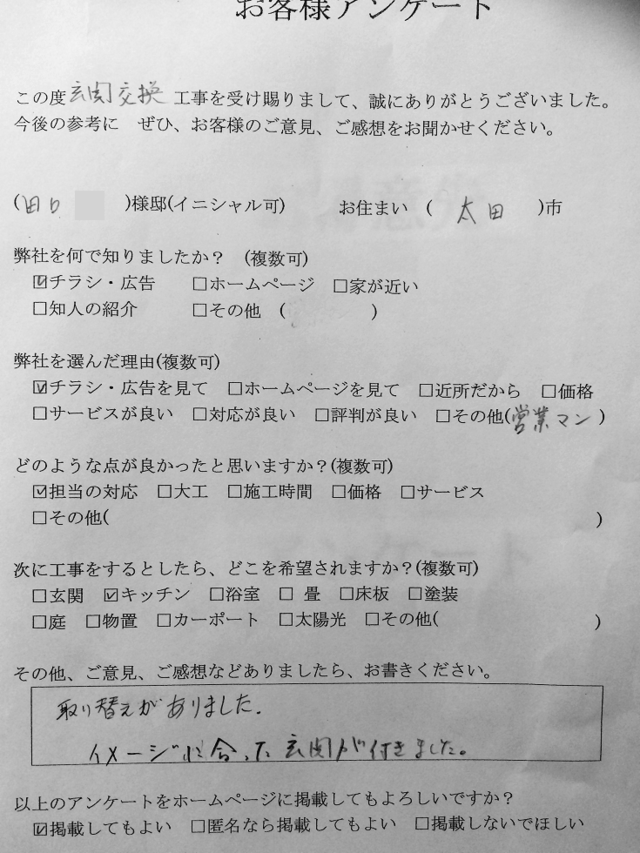 お客様アンケート
この度玄関交換工事を受け賜りまして、誠にありがとうございました。
今後の参考に ぜひ、お客様のご意見、ご感想をお聞かせください。
(田口 )様邸(イニシャル可) お住まい ( 太田 )市
弊社を何で知りましたか？ (複数可)
☑チラシ・広告 □ホームページ □家が近い
□知人の紹介 □その他 ( )
弊社を選んだ理由(複数可)
☑チラシ・広告を見て □ホームページを見て □近所だから □価格
□サービスが良い □対応が良い □評判が良い □その他(営業マン)
どのような点が良かったと思いますか？(複数可)
☑担当の対応 □大工 □施工時間 □価格 □サービス
□その他( )
次に工事をするとしたら、どこを希望されますか？(複数可)
□玄関 ☑キッチン □浴室 □ 畳 □床板 □塗装
□庭 □物置 □カーポート □太陽光 □その他( )
その他、ご意見、ご感想などありましたら、お書きください。
取り替えがありました.
イメージに合った玄関が付きました。
以上のアンケートをホームページに掲載してもよろしいですか？
☑掲載してもよい □匿名なら掲載してもよい □掲載しないでほしい